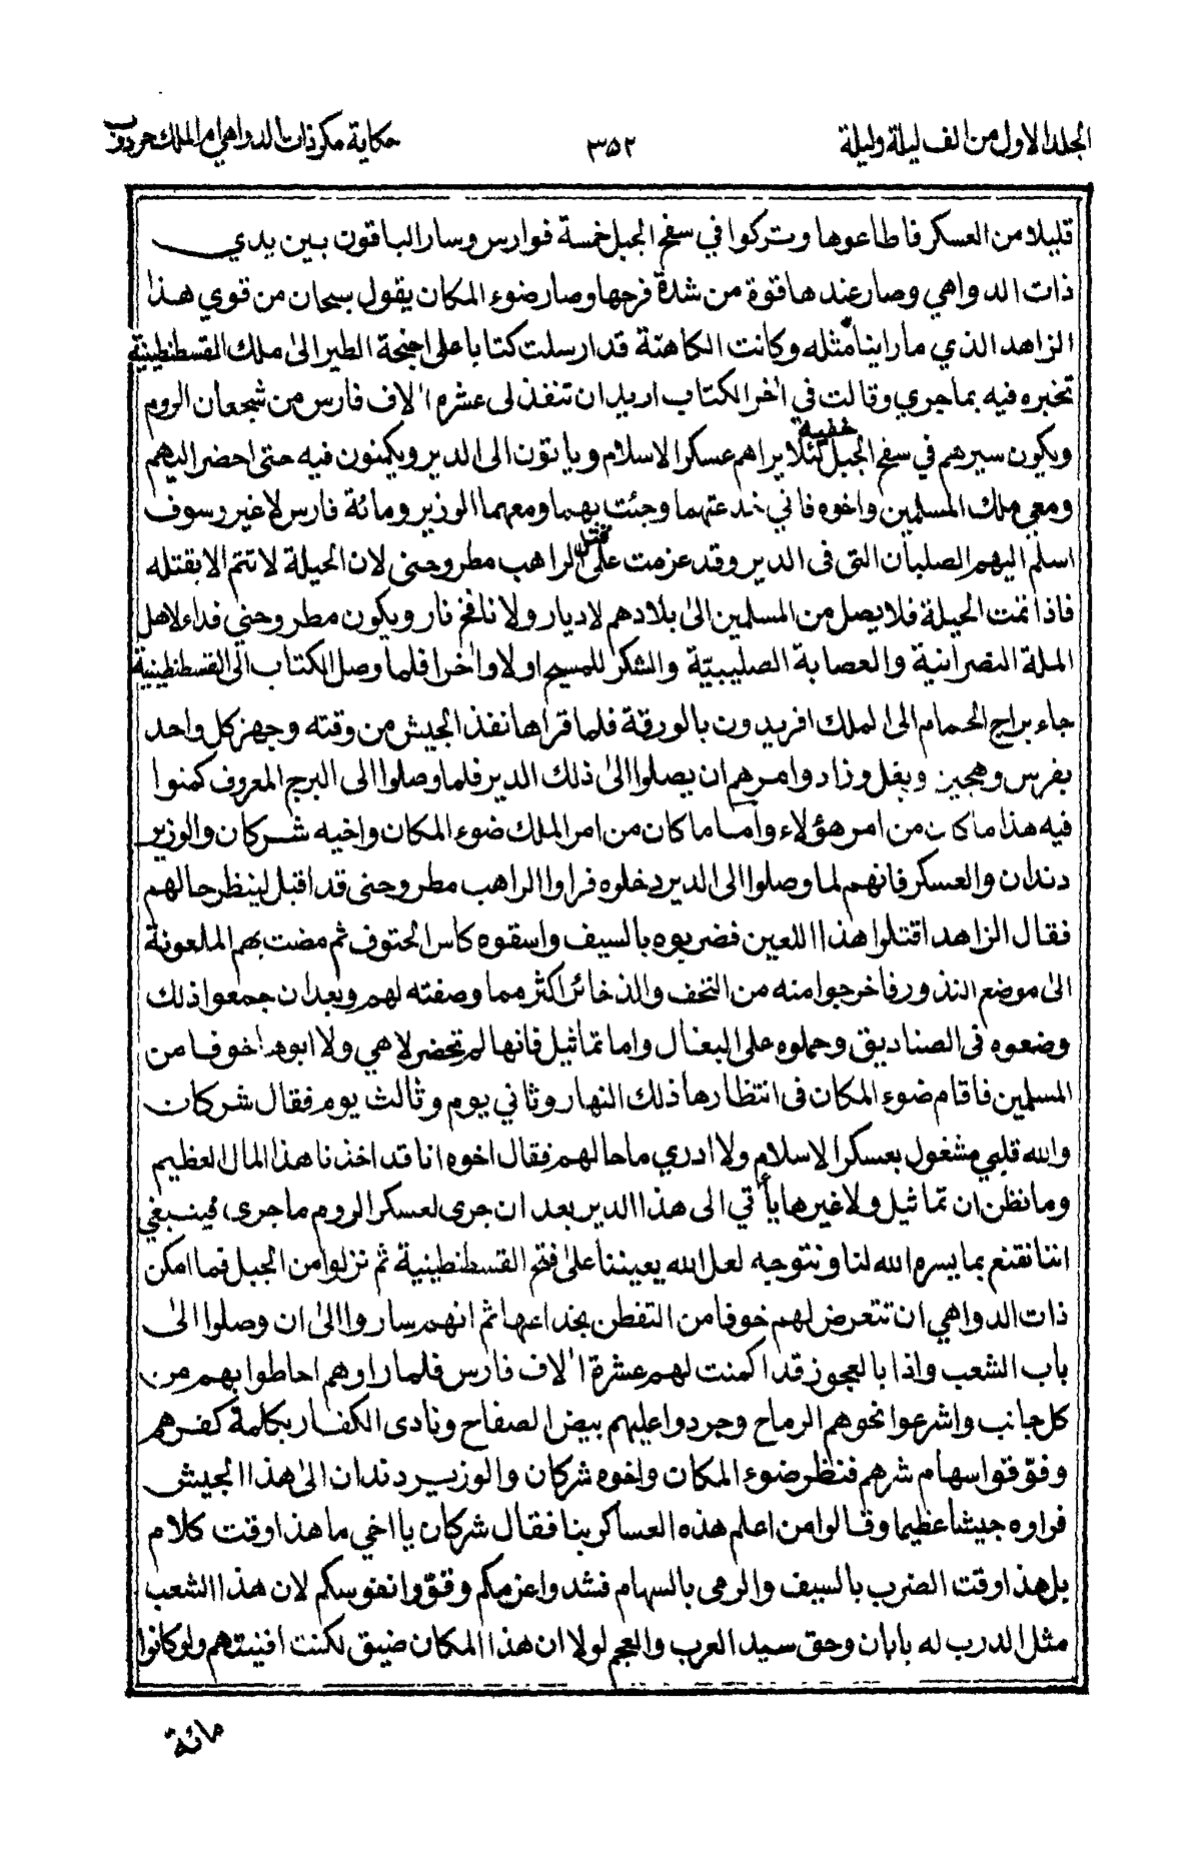 المجلد الاول من الف ليلة وليلة ٣٥٢ حكاية مكر ذات الدواهي ام الملك حردوب
قليلا من العسكر فاطاعوها وتركوا في سفح الجبل خمسة فوارس وسار الباقون بين يدي
ذات الدواهي وصار عندها قوة من شدة فرحها وصار ضوء المكان يقول سبحان من قوي هذا
الزاهد الذي ما راينا مثله وكانت الكاهنة قد ارسلت كتابا على اجنحة الطير الى ملك القسطنطينية
تخبره فيه بما جري وقالت في اخر الكتاب اريد ان تنفذ لى عشرة الاف فارس من شجعان الروم
ويكون سيرهم في سفح الجبل خفية لئلا يراهم عسكر الاسلام وياتون الى الدير ويكمنون فيه حتى احضر اليهم
ومعي ملك المسلمين واخوه فاني خدعتهما وجئت بهما ومعهما الوزير ومائة فارس لا غير وسوف
اسلم اليهم الصلبان التى فى الدير وقد عزمت على قتل الراهب مطروحنى لان الحيلة لا تتم الا بقتله
فاذا تمت الحيلة فلا يصل من المسلمين الى بلادهم لا ديار ولا نافخ نار ويكون مطروحني فداء لاهل
الملة النصرانية والعصابة الصليبيّة والشكر للمسيح اولا واخرا فلما وصل الكتاب الى القسطنطينية
جاء براج الحمام الى الملك افريدون بالورقة فلما قراها نفذ الجيش من وقته وجهز كل واحد
بفرس وهجين وبغل وزاد وامرهم ان يصلوا الى ذلك الدير فلما وصلوا الى البرج المعروف كمنوا
فيه هذا ما كان من امر هؤلاء وأما ما كان من امر الملك ضوء المكان واخيه شركان والوزير
دندان والعسكر فانهم لما وصلوا الى الدير دخلوه فراوا الراهب مطروحنى قد اقبل لينظر حالهم
فقال الزاهد اقتلوا هذا اللعين فضربوه بالسيف واسقوه كاس الحتوف ثم مضت بهم الملعونة
الى موضع النذور فاخرجوا منه من التحف والذخائر اكثر مما وصفته لهم وبعد ان جمعوا ذلك
وضعوه فى الصناديق وحملوه على البغال واما تماثيل فانها لم تحضر لا هي ولا ابوها خوفا من
المسلمين فاقام ضوء المكان فى انتظارها ذلك النهار وثاني يوم وثالث يوم فقال شركان
والله قلبي مشغول بعسكر الاسلام ولا ادري ما حالهم فقال اخوه انا قد اخذنا هذا المال العظيم
وما نظن ان تماثيل ولا غيرها يأتي الى هذا الدير بعد ان جرى لعسكر الروم ما جرى فينبغي
اننا نقنع بما يسره الله لنا ونتوجه لعل الله يعيننا على فتح القسطنطينية ثم نزلوا من الجبل فما امكن
ذات الدواهي ان تتعرض لهم خوفا من التفطن بخداعها ثم انهم ساروا الى ان وصلوا الى
باب الشعب واذا بالعجوز قد اكمنت لهم عشرة الاف فارس فلما راوهم احاطوا بهم من
كل جانب واشرعوا نحوهم الرماح وجردوا عليهم بيض الصفاح ونادى الكفار بكلمة كفرهم
وفوّقوا سهام شرهم فنظر ضوء المكان واخوه شركان والوزير دندان الى هذا الجيش
فراوه جيشا عظيما وقالوا من اعلم هذه العساكر بنا فقال شركان يا اخي ما هذا وقت كلام
بل هذا وقت الضرب بالسيف والرمى بالسهام فشدوا عزمكم وقوّوا نفوسكم لان هذا الشعب
مثل الدرب له بابان وحق سيد العرب والعجم لولا ان هذا المكان ضيق لكنت افنيتهم ولو كانوا
مائة